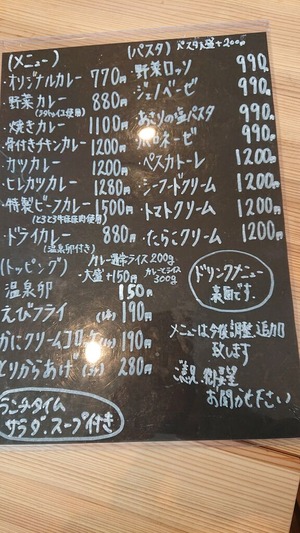 (メニュー)
・オリジナルカレー 770円
・野菜カレー 880円
・焼きカレー 1100円
・骨付きチキンカレー 1200円
・カツカレー 1200円
・ヒレカツカレー 1280円
・特製ビーフカレー 1500円
・ドライカレー 880円
(温泉卵付き)
(トッピング) カレー通常ライス200g
・大盛+150円 カレーとライス300g
温泉卵 150円
えびフライ 190円
かにクリームコロッケ 190円
とりからあげ 280円
ランチタイム
サラダ・スープ付き
(パスタ) パスタ大盛+200円
・野菜ロッソ 990円
・ジェノベーゼ 990円
・あさりの塩パスタ 990円
・ボロネーゼ 990円
・ペスカトーレ 1200円
・シーフードクリーム 1200円
・トマトクリーム 1200円
・たらこクリーム 1200円
ドリンクメニュー
裏面です.
メニューは今後調整、追加
致します
ご意見、御要望
お聞かせ下さい